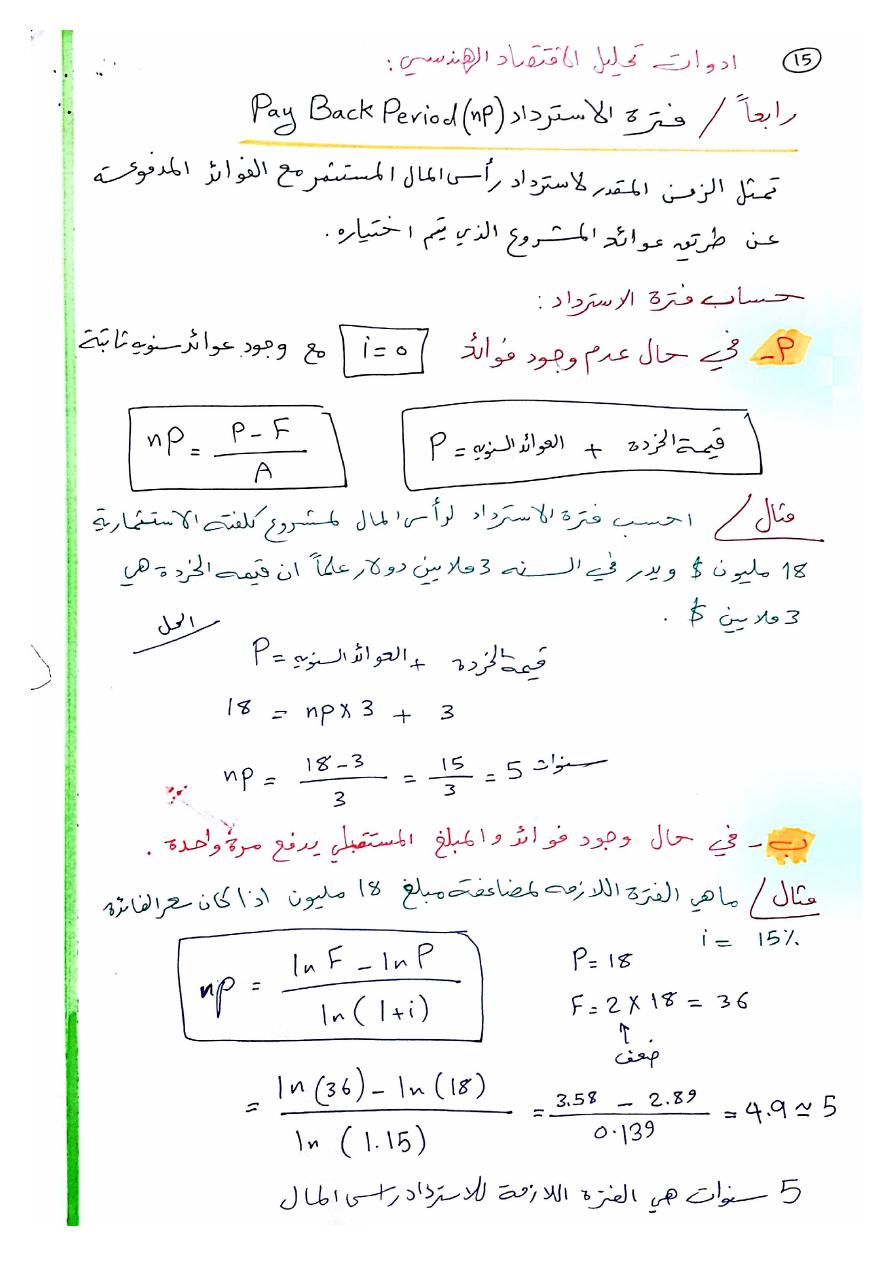 15 ادوات تحليل الاقتصاد الهندسي:
رابعاً / فترة الاسترداد Pay Back Period (np)
تمثل الزمن المقدر لاسترداد رأس المال المستثمر مع الفوائد المدفوعة
عن طريق عوائد المشروع الذي يتم اختياره.
حساب فترة الاسترداد:
P- في حال عدم وجود فوائد i=0 مع وجود عوائد سنويه ثابتة
P = العوائد السنويه + قيمة الخردة
np = (P - F) / A
مثال / احسب فترة الاسترداد لرأس المال لمشروع كلفته الاستثمارية
18 مليون $ ويدر في السنه 3 ملايين دولار علماً ان قيمه الخردة هي
3 ملايين $ .
الحل
P = العوائد السنويه + قيمة الخردة
18 = np x 3 + 3
np = (18-3) / 3 = 15 / 3 = 5 سنوات
ب- في حال وجود فوائد والمبلغ المستقبلي يدفع مرة واحدة .
مثال / ماهي الفترة اللازمه لمضاعفة مبلغ 18 مليون اذا كان سعر الفائدة
i = 15%
P = 18
F = 2 x 18 = 36
↑
ضعف
np = (ln F - ln P) / ln (1+i)
= (ln (36) - ln (18)) / ln (1.15) = (3.58 - 2.89) / 0.139 = 4.9 ≃ 5
5 سنوات هي الفترة اللازمة للاسترداد راس المال